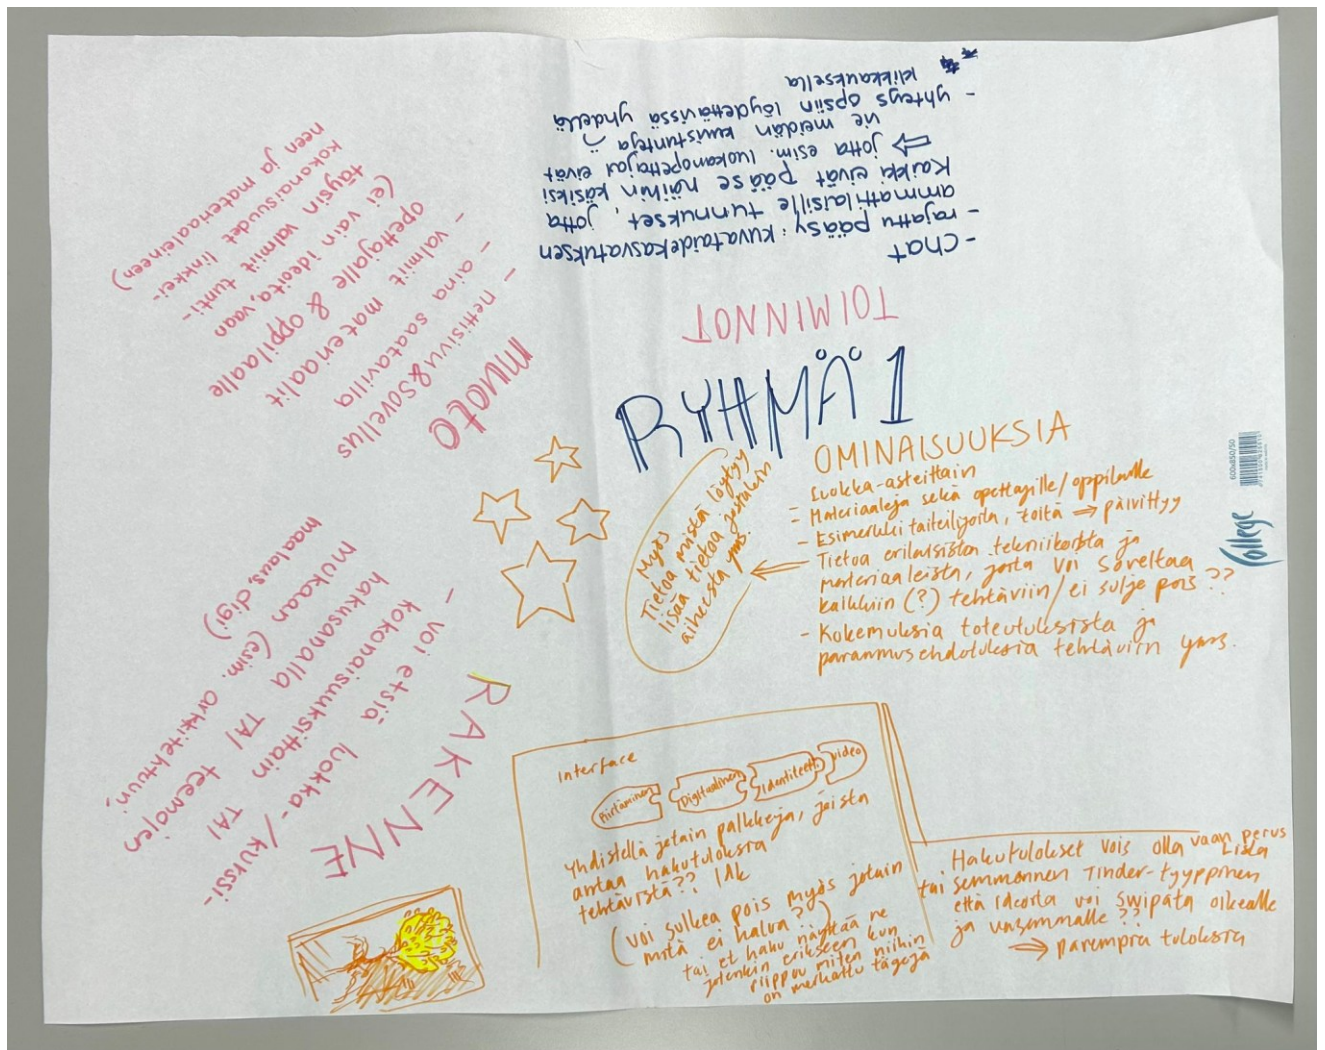 RYHMÄ 1
TOIMINNOT
- chat
- rajattu pääsy: kuvataidekasvatuksen
ammattilaisille tunnukset, jotta
kaikki eivät pääse näihin käsiksi
⇒ jotta esim. luokanopettajat eivät
vie meidän kuvistunteja
- yhteys opsiin löydettävissä yhdellä
klikkauksella
muoto
- nettisivu & sovellus
- aina saatavilla
- valmiit materiaalit
opettajalle & oppilaalle
(ei vain ideoita, vaan
täysin valmiit tunti-
kokonaisuudet linkkei-
neen ja materiaaleineen)
OMINAISUUKSIA
- Luokka-asteittain
- Materiaaleja sekä opettajille/oppilaille
- Esimerkki taiteilijoita, töitä ⇒ päivittyy
- Tietoa erilaisista tekniikoista ja
materiaaleista, joita voi soveltaa
kaikkiin (?) tehtäviin/ei sulje pois ??
- Kokemuksia toteutuksista ja
parannusehdotuksia tehtäviin yms.
Myös
Tietoa mistä löytyy
lisää tietoa jostakin
aiheesta yms.
RAKENNE
- voi etsiä luokka-/kurssi-
kokonaisuuksittain TAI
hakusanalla TAI teemojen
mukaan (esim. arkkitehtuuri,
maalaus, digi)
Interface
Piirtäminen
Digitaalinen
Identiteetti
video
Yhdistellä jotain palkkeja, joista
antaa hakutuloksia
tehtävistä??
(voi sulkea pois myös jotain
mitä ei halua?)
tai et haku näyttää ne
jotenkin erikseen kun
riippuu miten niihin
on merkattu tägejä
Hakutulokset vois olla vaan perus
Lista
tai semmonen Tinder-tyyppinen
että ideoita voi swipata oikealle
ja vasemmalle ??
⇒ parempia tuloksia
College